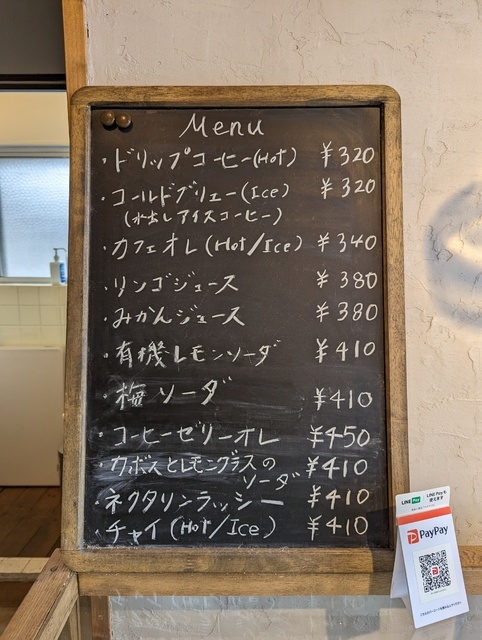 Menu
・ドリップコーヒー(Hot) ¥320
・コールドブリュー(Ice) ¥320
(水出しアイスコーヒー)
・カフェオレ(Hot/Ice) ¥340
・リンゴジュース ¥380
・みかんジュース ¥380
・有機レモンソーダ ¥410
・梅ソーダ ¥410
・コーヒーゼリーオレ ¥450
・カボスとレモングラスの
ソーダ ¥410
・ネクタリンラッシー ¥410
・チャイ(Hot/Ice) ¥410
LINE Pay
PayPay